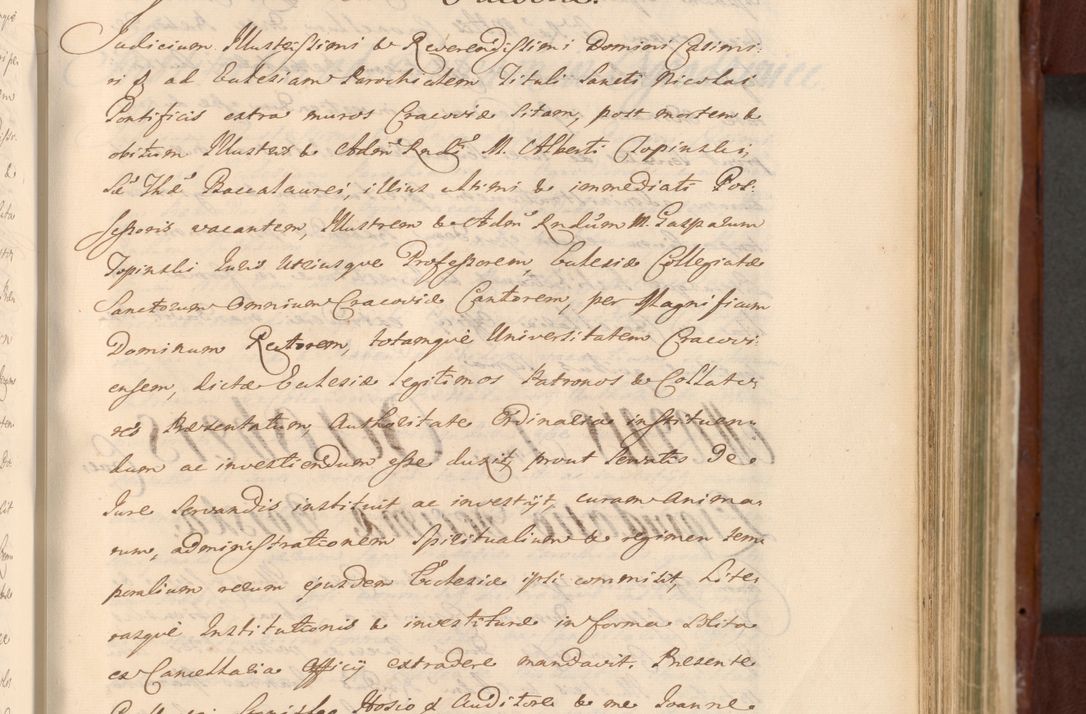 Judicium Illustrissimi & Reverendissimi Domini Casimi:
ri & ad Ecclesiam Parochialem Tituli Sancti Nicolai
Pontificis extra muros Cracoviæ sitam, post mortem &
obitum Illustris & Admˢ Rndi M. Alberti Topinski,
Sæ Thæ Baccalaurei, illius ultimi & immediati Pos:
sessoris vacantem, Illustrem & Admˢ Rndum M. Gasparum
Topinski Juris Utriusque Professorem, Ecclesiæ Collegiatæ
Sanctorum Omnium Cracoviæ Cantorem, per Magnificum
Dominum Rectorem, totamque Universitatem Cracovi:
ensem, dictæ Ecclesiæ legitimos Patronos & Collato:
res Præsentatum Authoritate Ordinaria instituen:
dum ac investiendum esse duxit prout servatis De
Jure Servandis instituit ac investijt, curam Anima:
rum, administrationem Spiritualium & regimen tem:
poralium rerum ejusdem Ecclesiæ ipsi commisit, Lite:
rasque Institutionis & investituræ in forma solita
ex Cancellaria Officij extradere mandavit. Præsente
Hosio & Auditore & me Joanne